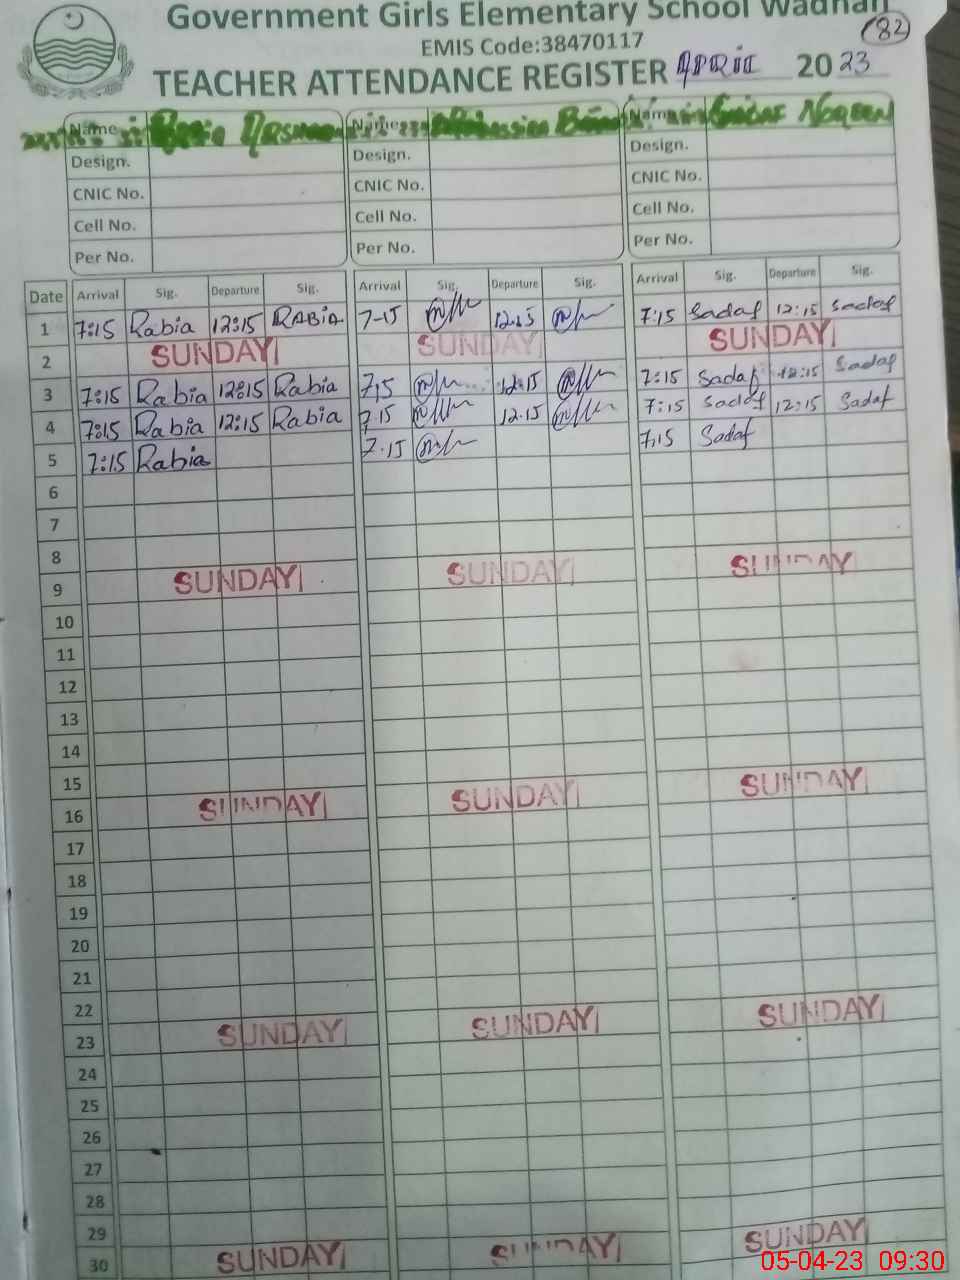 Government Girls Elementary School Wadhan
82
EMIS Code:38470117
TEACHER ATTENDANCE REGISTER APRIL 2023
Name Rabia Name Name Sadaf Noreen
Design. Design. Design.
CNIC No. CNIC No. CNIC No.
Cell No. Cell No. Cell No.
Per No. Per No. Per No.
Date Arrival Sig. Departure Sig. Arrival Sig. Departure Sig. Arrival Sig. Departure Sig.
1 7:15 Rabia 12:15 RABIA 7-15 12.15 7:15 Sadaf 12:15 Sadaf
2 SUNDAY SUNDAY SUNDAY
3 7:15 Rabia 12:15 Rabia 7.15 12.15 7:15 Sadaf 12:15 Sadaf
4 7:15 Rabia 12:15 Rabia 7.15 12.15 7:15 Sadaf 12:15 Sadaf
5 7:15 Rabia 7.15 7.15 Sadaf
6
7
8
9 SUNDAY SUNDAY SUNDAY
10
11
12
13
14
15
16 SUNDAY SUNDAY SUNDAY
17
18
19
20
21
22
23 SUNDAY SUNDAY SUNDAY
24
25
26
27
28
29
30 SUNDAY SUNDAY SUNDAY
05-04-23 09:30